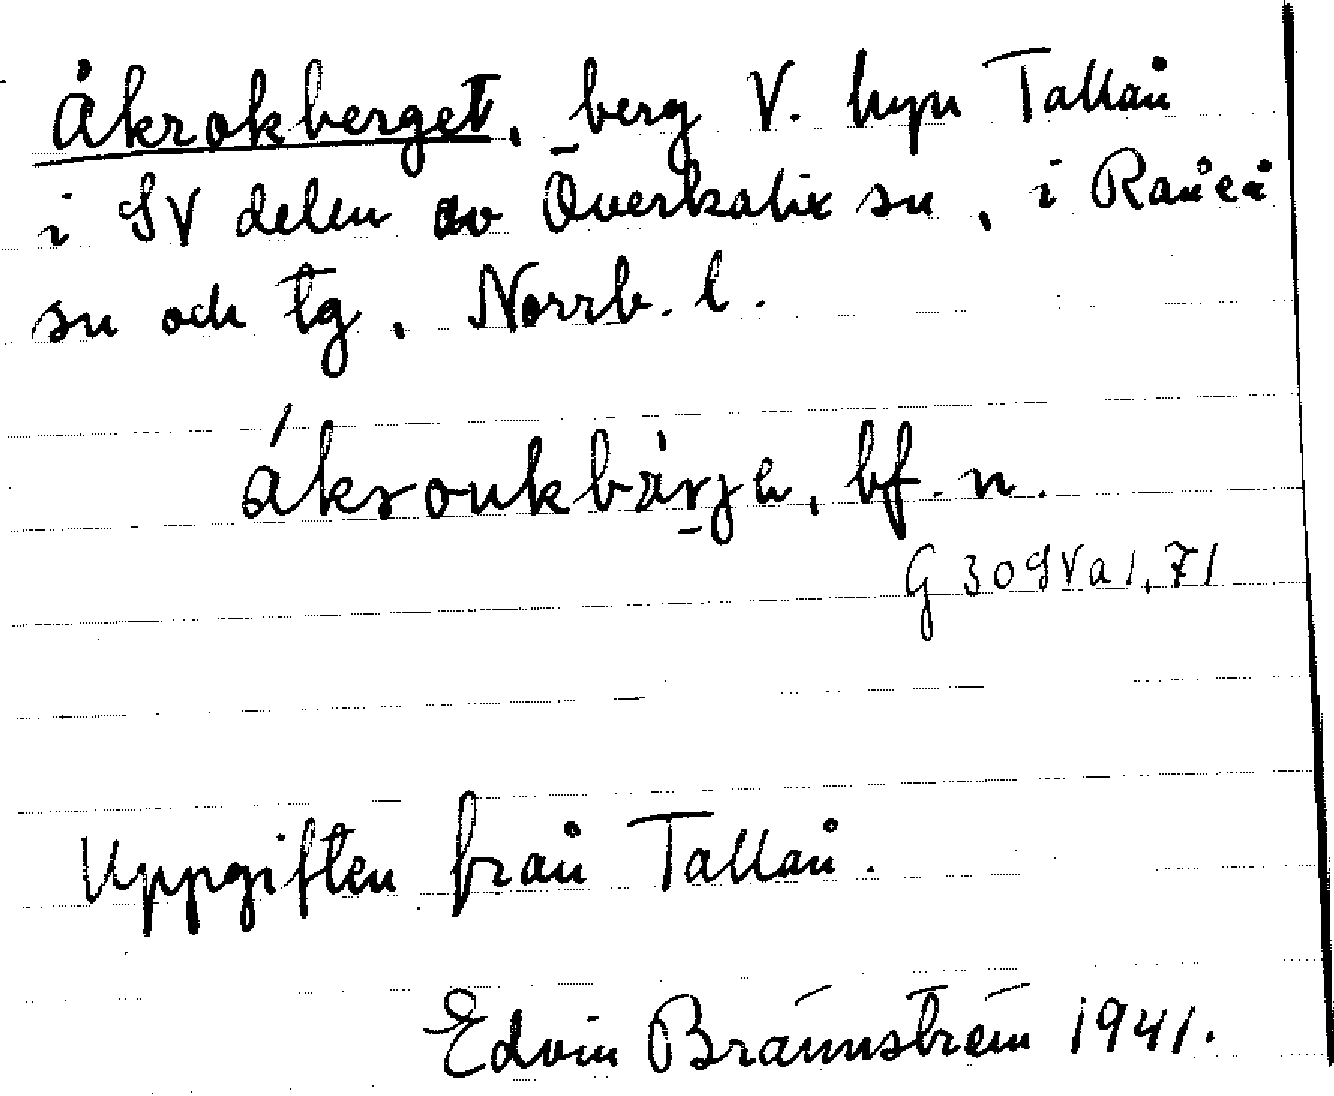 Åkrokberget, berg V. hyn Tallån
i SV delen av Överkalix sn, i Råneå
sn och tg, Norrb. l.
ákroukbärje, bf. n.
G 30 SV a 1, 71
Uppgiften från Tallån.
Edvin Brännström 1941.